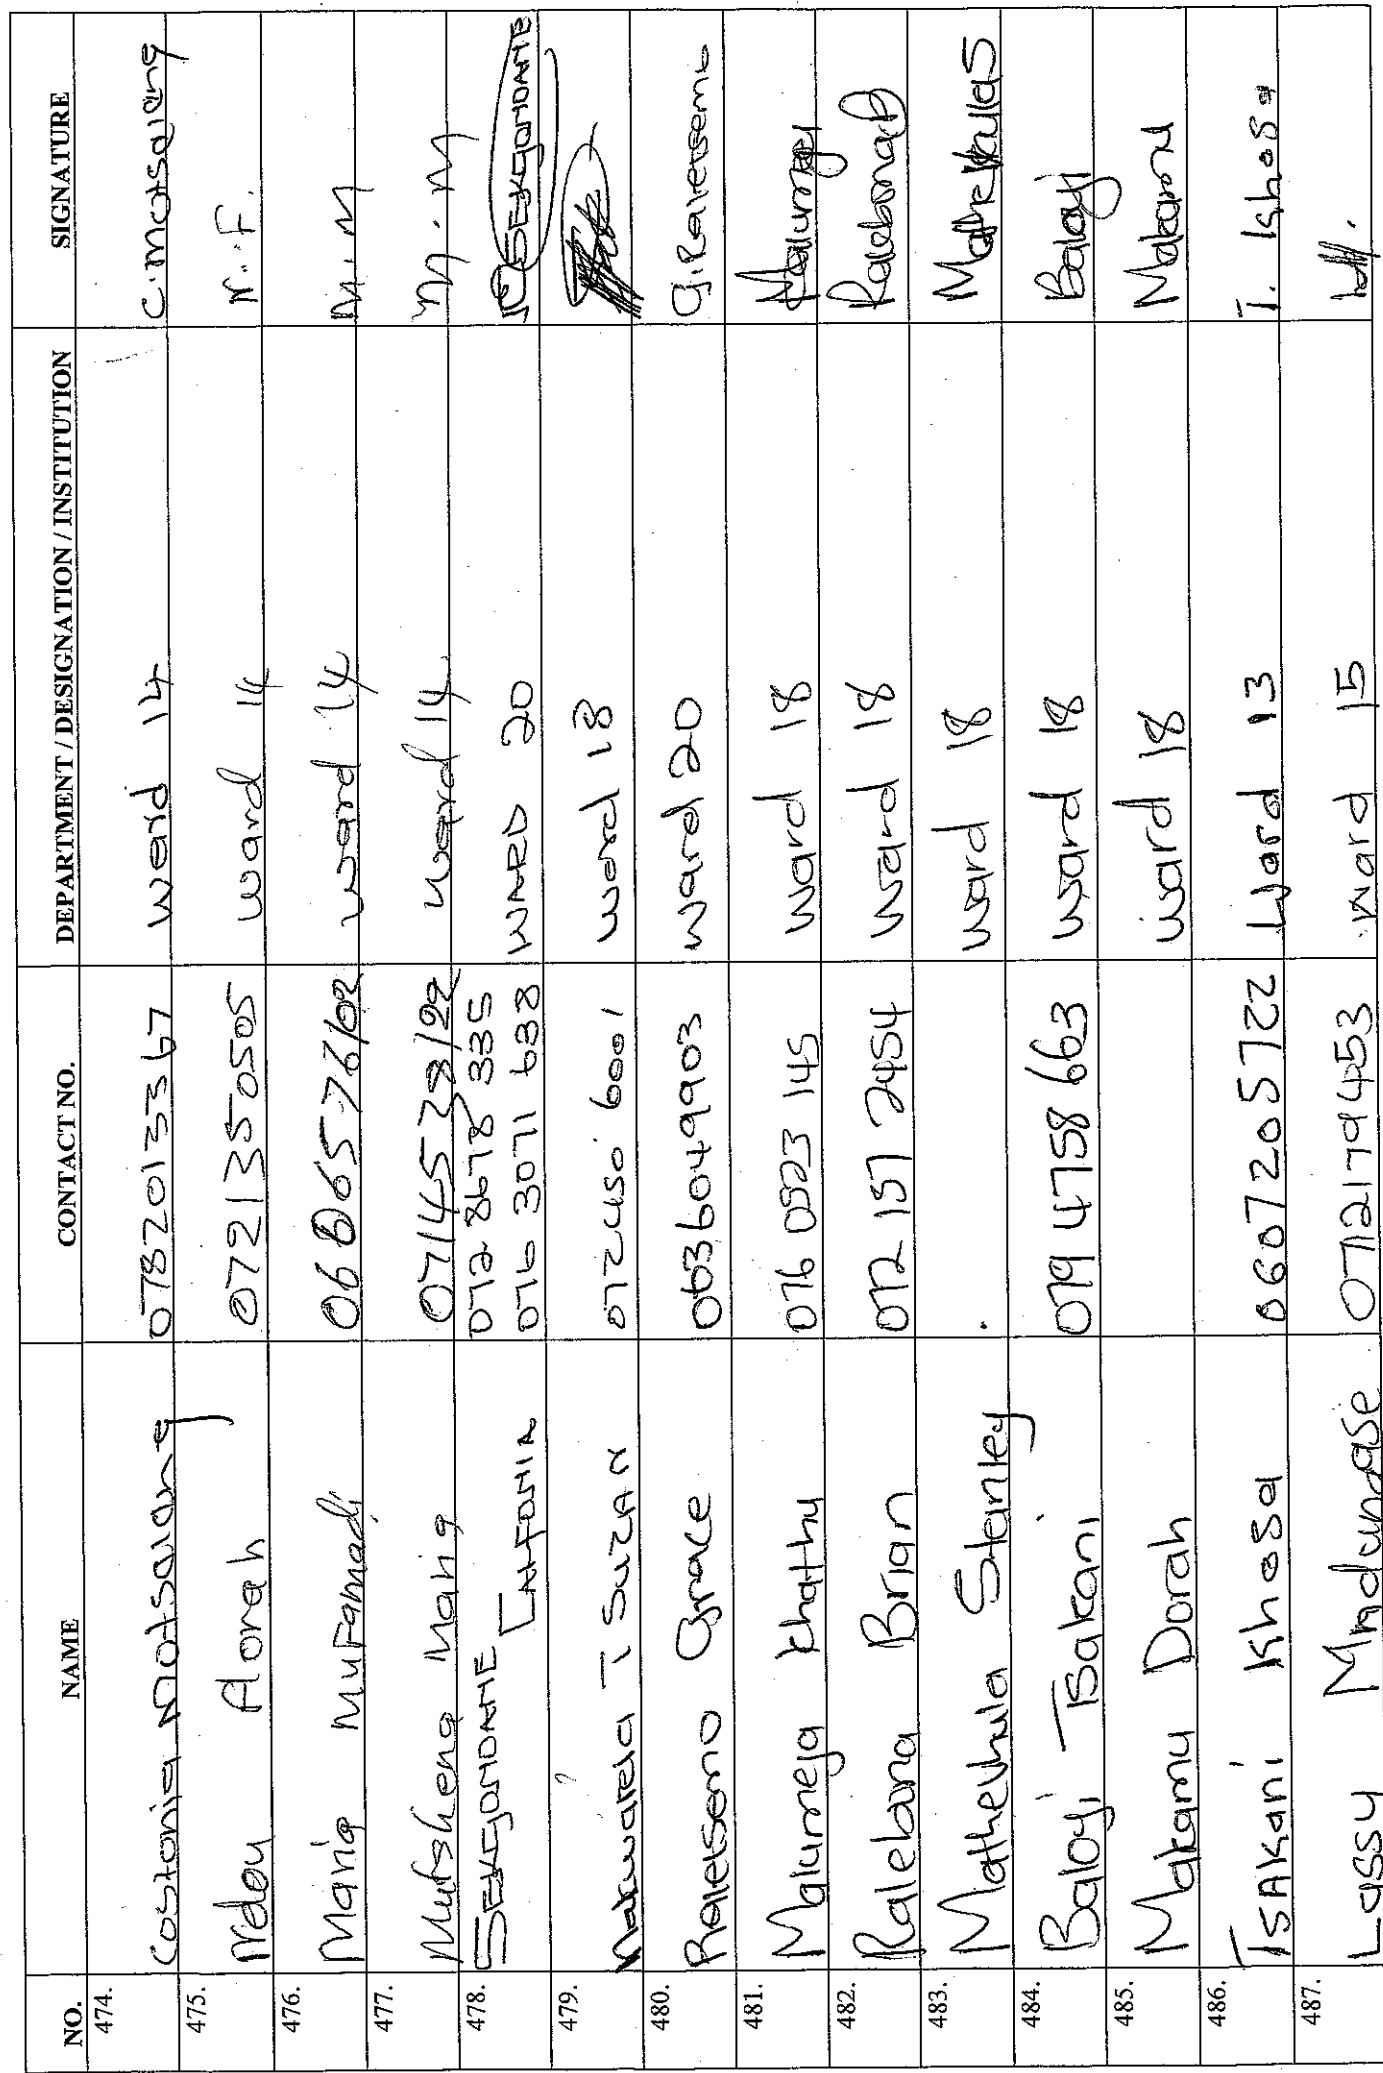 NO. NAME CONTACT NO. DEPARTMENT / DESIGNATION / INSTITUTION SIGNATURE
474. Costonia Motsaiang 0782013367 Ward 14 C. motsaiang
475. Ndou Alorah 0721350505 Ward 14 N.F.
476. Maria Mufamadi ward 14 M.M
477. Maria ward 14 M.M
478. SEKGONDAHE LAHFONIA 072 8678 335 WARD 20 SEKGONDAHE
076 3071 638
479. Makwarela T SuZAN 072 450 6001 Ward 18
480. Grace 0636049903 Ward 20
481. Malumeja Khathu 076 0523 145 Ward 18
482. Ralebona Brian 072 157 2454 Ward 18
483. Mathevhula Stanley ward 18
484. Baloyi Tsakani 079 4758 663 ward 18 Baloyi
485. Makamu Dorah ward 18 Makamu
486. TSAKani Khosa 0607205722 Ward 13 T. Khosa
487. Lassy Mndungase 0712179453 Ward 15